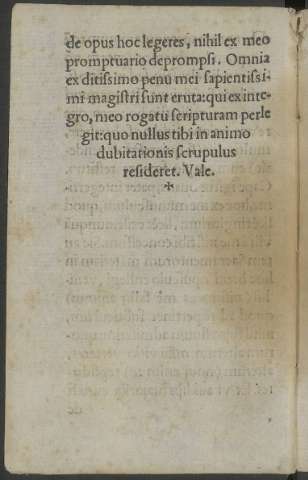 de opus hoc legeres, nihil ex meo
promptuario deprompsi. Omnia
ex ditissimo penu mei sapientissi-
mi magistri sunt eruta: qui ex inte-
gro, meo rogatu scripturam perle
git: quo nullus tibi in animo
dubitationis scrupulus
resideret. Vale.